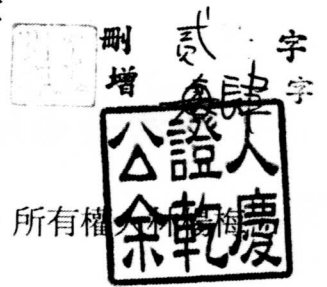 刪貳字
增肆字
公證人
余乾慶
所有權人林楊梅